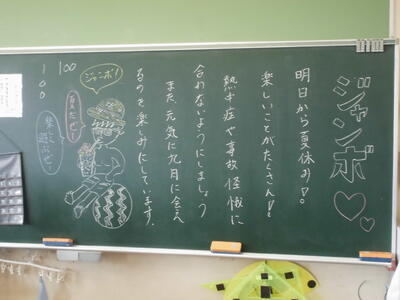 ジャンボ♡♡
明日から夏休み!!
楽しいことがたくさん!!
熱中症や事故怪我に
合わないようにしましょう
また、元気に九月に会え
るのを楽しみにしています。
ジャンボ!
夏だぜ!
楽しく遊ぶぜ!
100
100